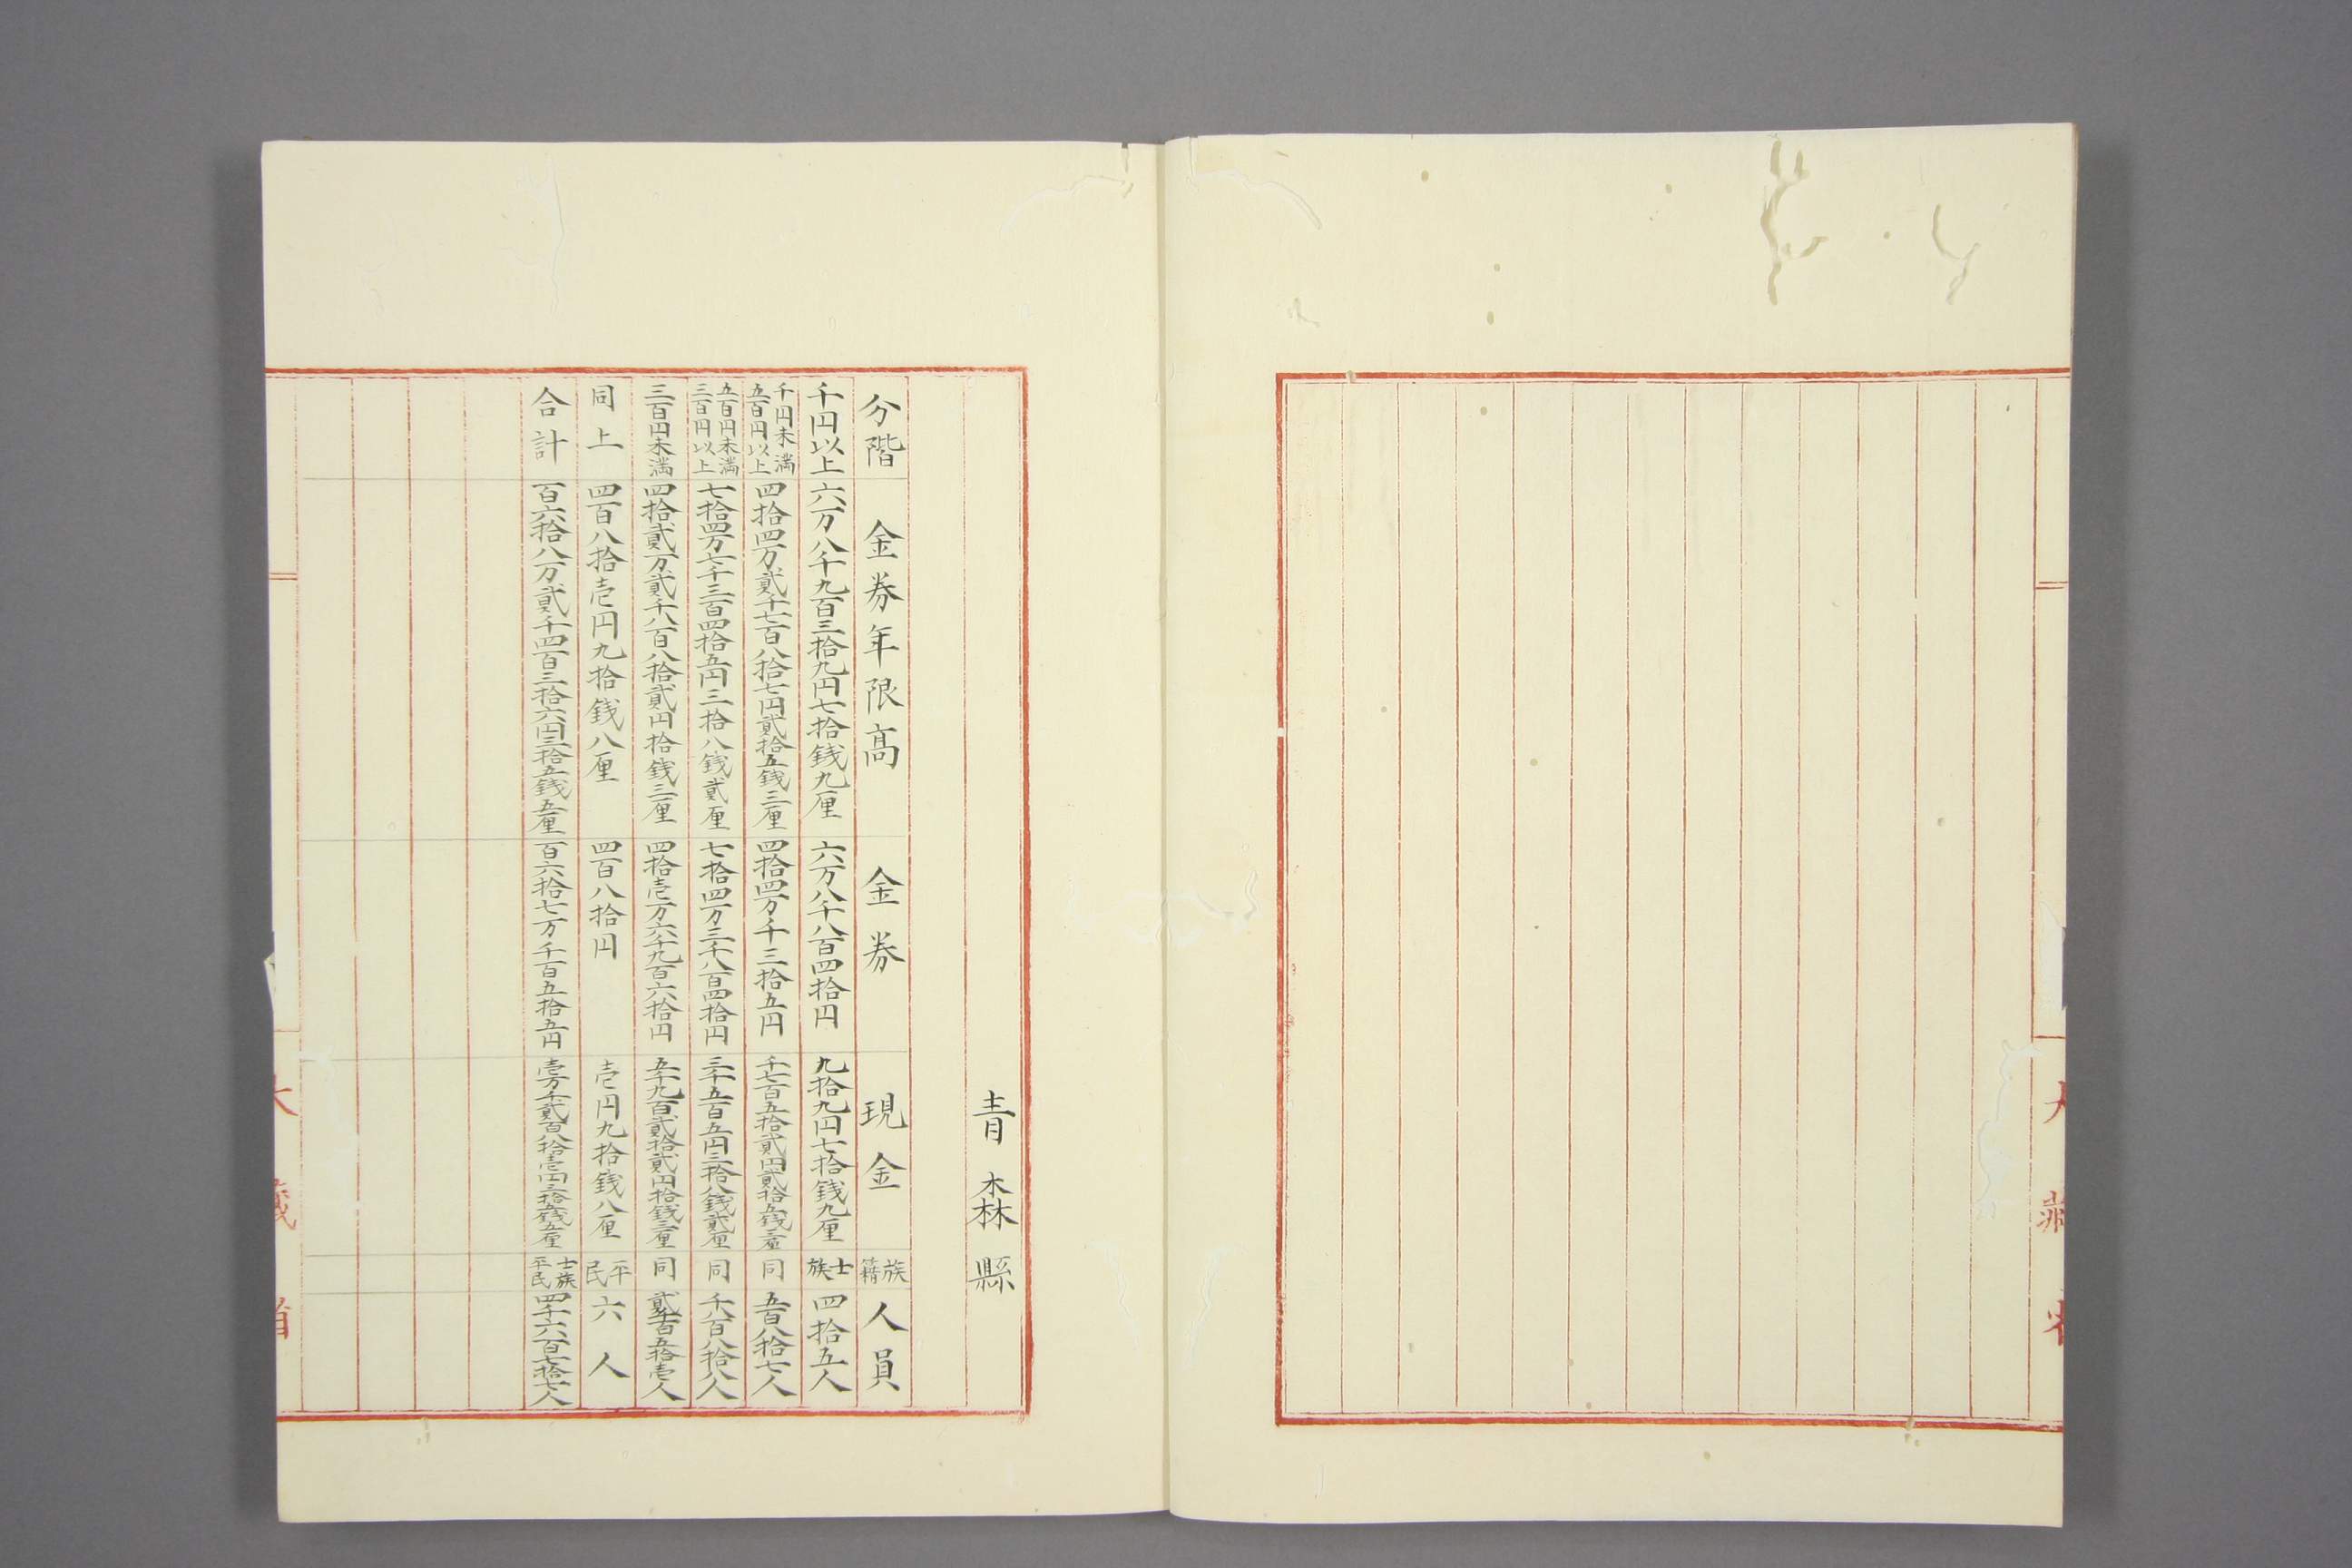 青森縣
分階 金券年限高 金券 現金 族籍 人員
千円以上 六万八千九百三拾九円七拾銭九厘 六万八千八百四拾円 九拾九円七拾銭九厘 士族 四拾五人
千円未満五百円以上 四拾四万貳千七百八拾七円貳拾五銭三厘 四拾四万千三拾五円 千七百五拾貳円貳拾五銭三厘 同 五百八拾七人
五百円未満三百円以上 七拾四万七千三百四拾五円三拾八銭貳厘 七拾四万三千八百四拾円 三千五百五円三拾八銭貳厘 同 千八百八拾八人
三百円未満 四拾貳万貳千八百八拾貳円拾銭三厘 四拾壱万六千九百六拾円 五千九百貳拾貳円拾銭三厘 同 貳千百五拾壱人
同上 四百八拾壱円九拾銭八厘 四百八拾円 壱円九拾銭八厘 平民 六人
合計 百六拾八万貳千四百三拾六円三拾五銭五厘 百六拾七万千百五拾五円 壱万千貳百八拾壱円三拾五銭五厘 士族平民 四千六百七拾七人